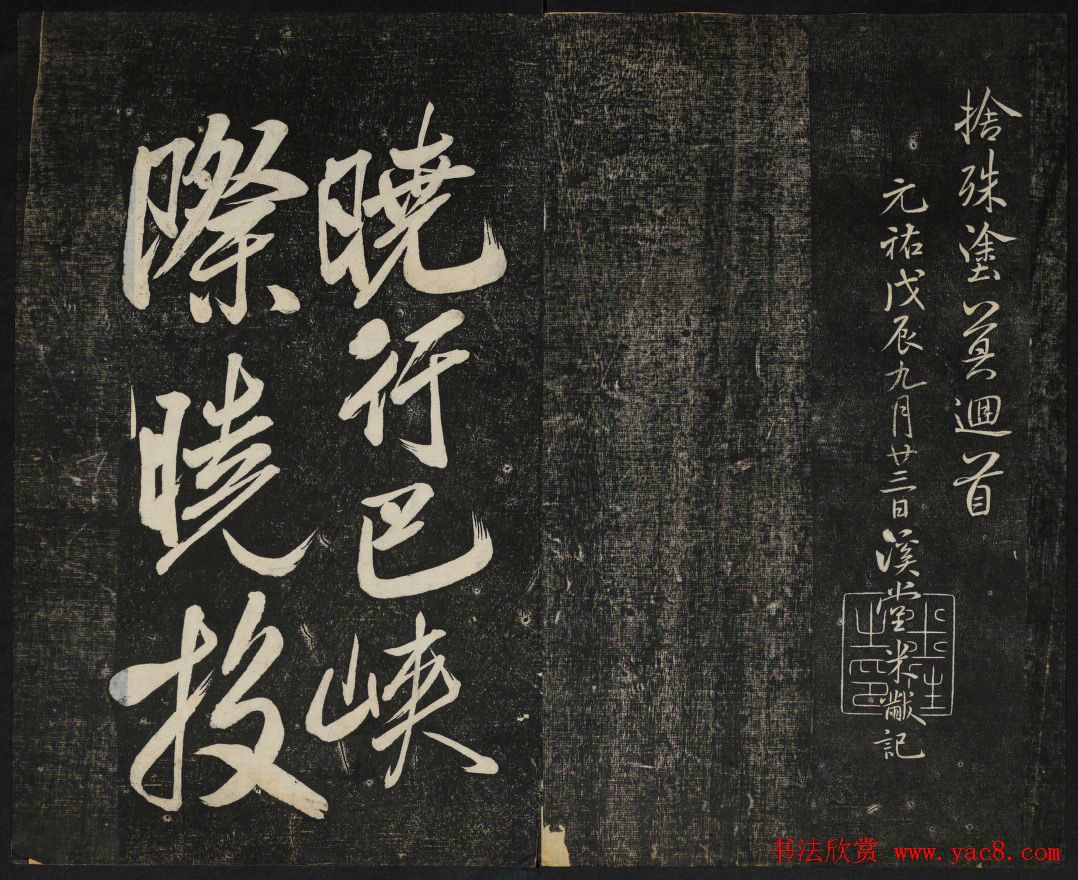 捨殊塗莫迴首
元祐戊辰九月廿三日溪堂米黻記
曉行巴峽
際曉投
书法欣赏 www.yac8.com